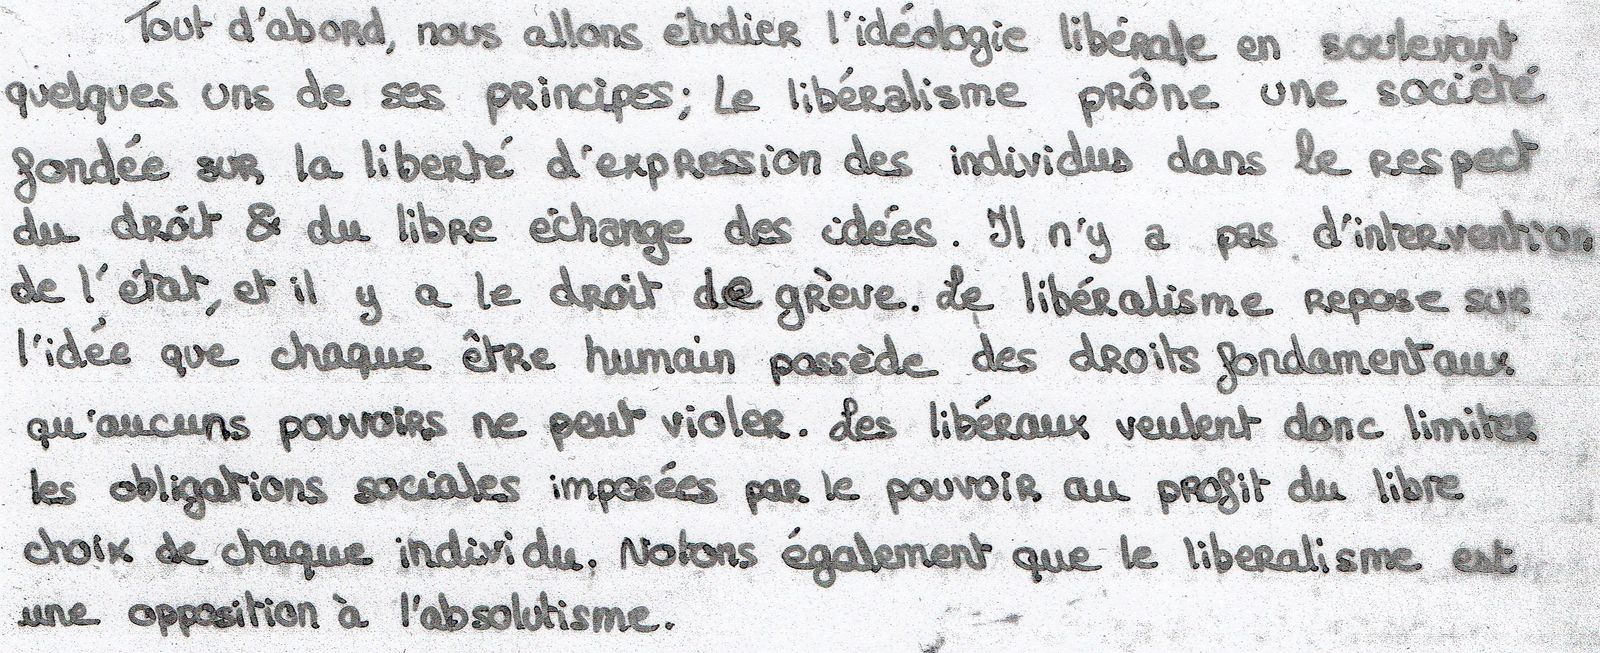 Tout d'abord, nous allons étudier l'idéologie libérale en soulevant
quelques uns de ses principes; Le libéralisme prône une société
fondée sur la liberté d'expression des individus dans le respect
du droit & du libre échange des idées. Il n'y a pas d'intervention
de l'état, et il y a le droit de grève. Le libéralisme repose sur
l'idée que chaque être humain possède des droits fondamentaux
qu'aucuns pouvoirs ne peut violer. Les libéraux veulent donc limiter
les obligations sociales imposées par le pouvoir au profit du libre
choix de chaque individu. Notons également que le liberalisme est
une opposition à l'absolutisme.